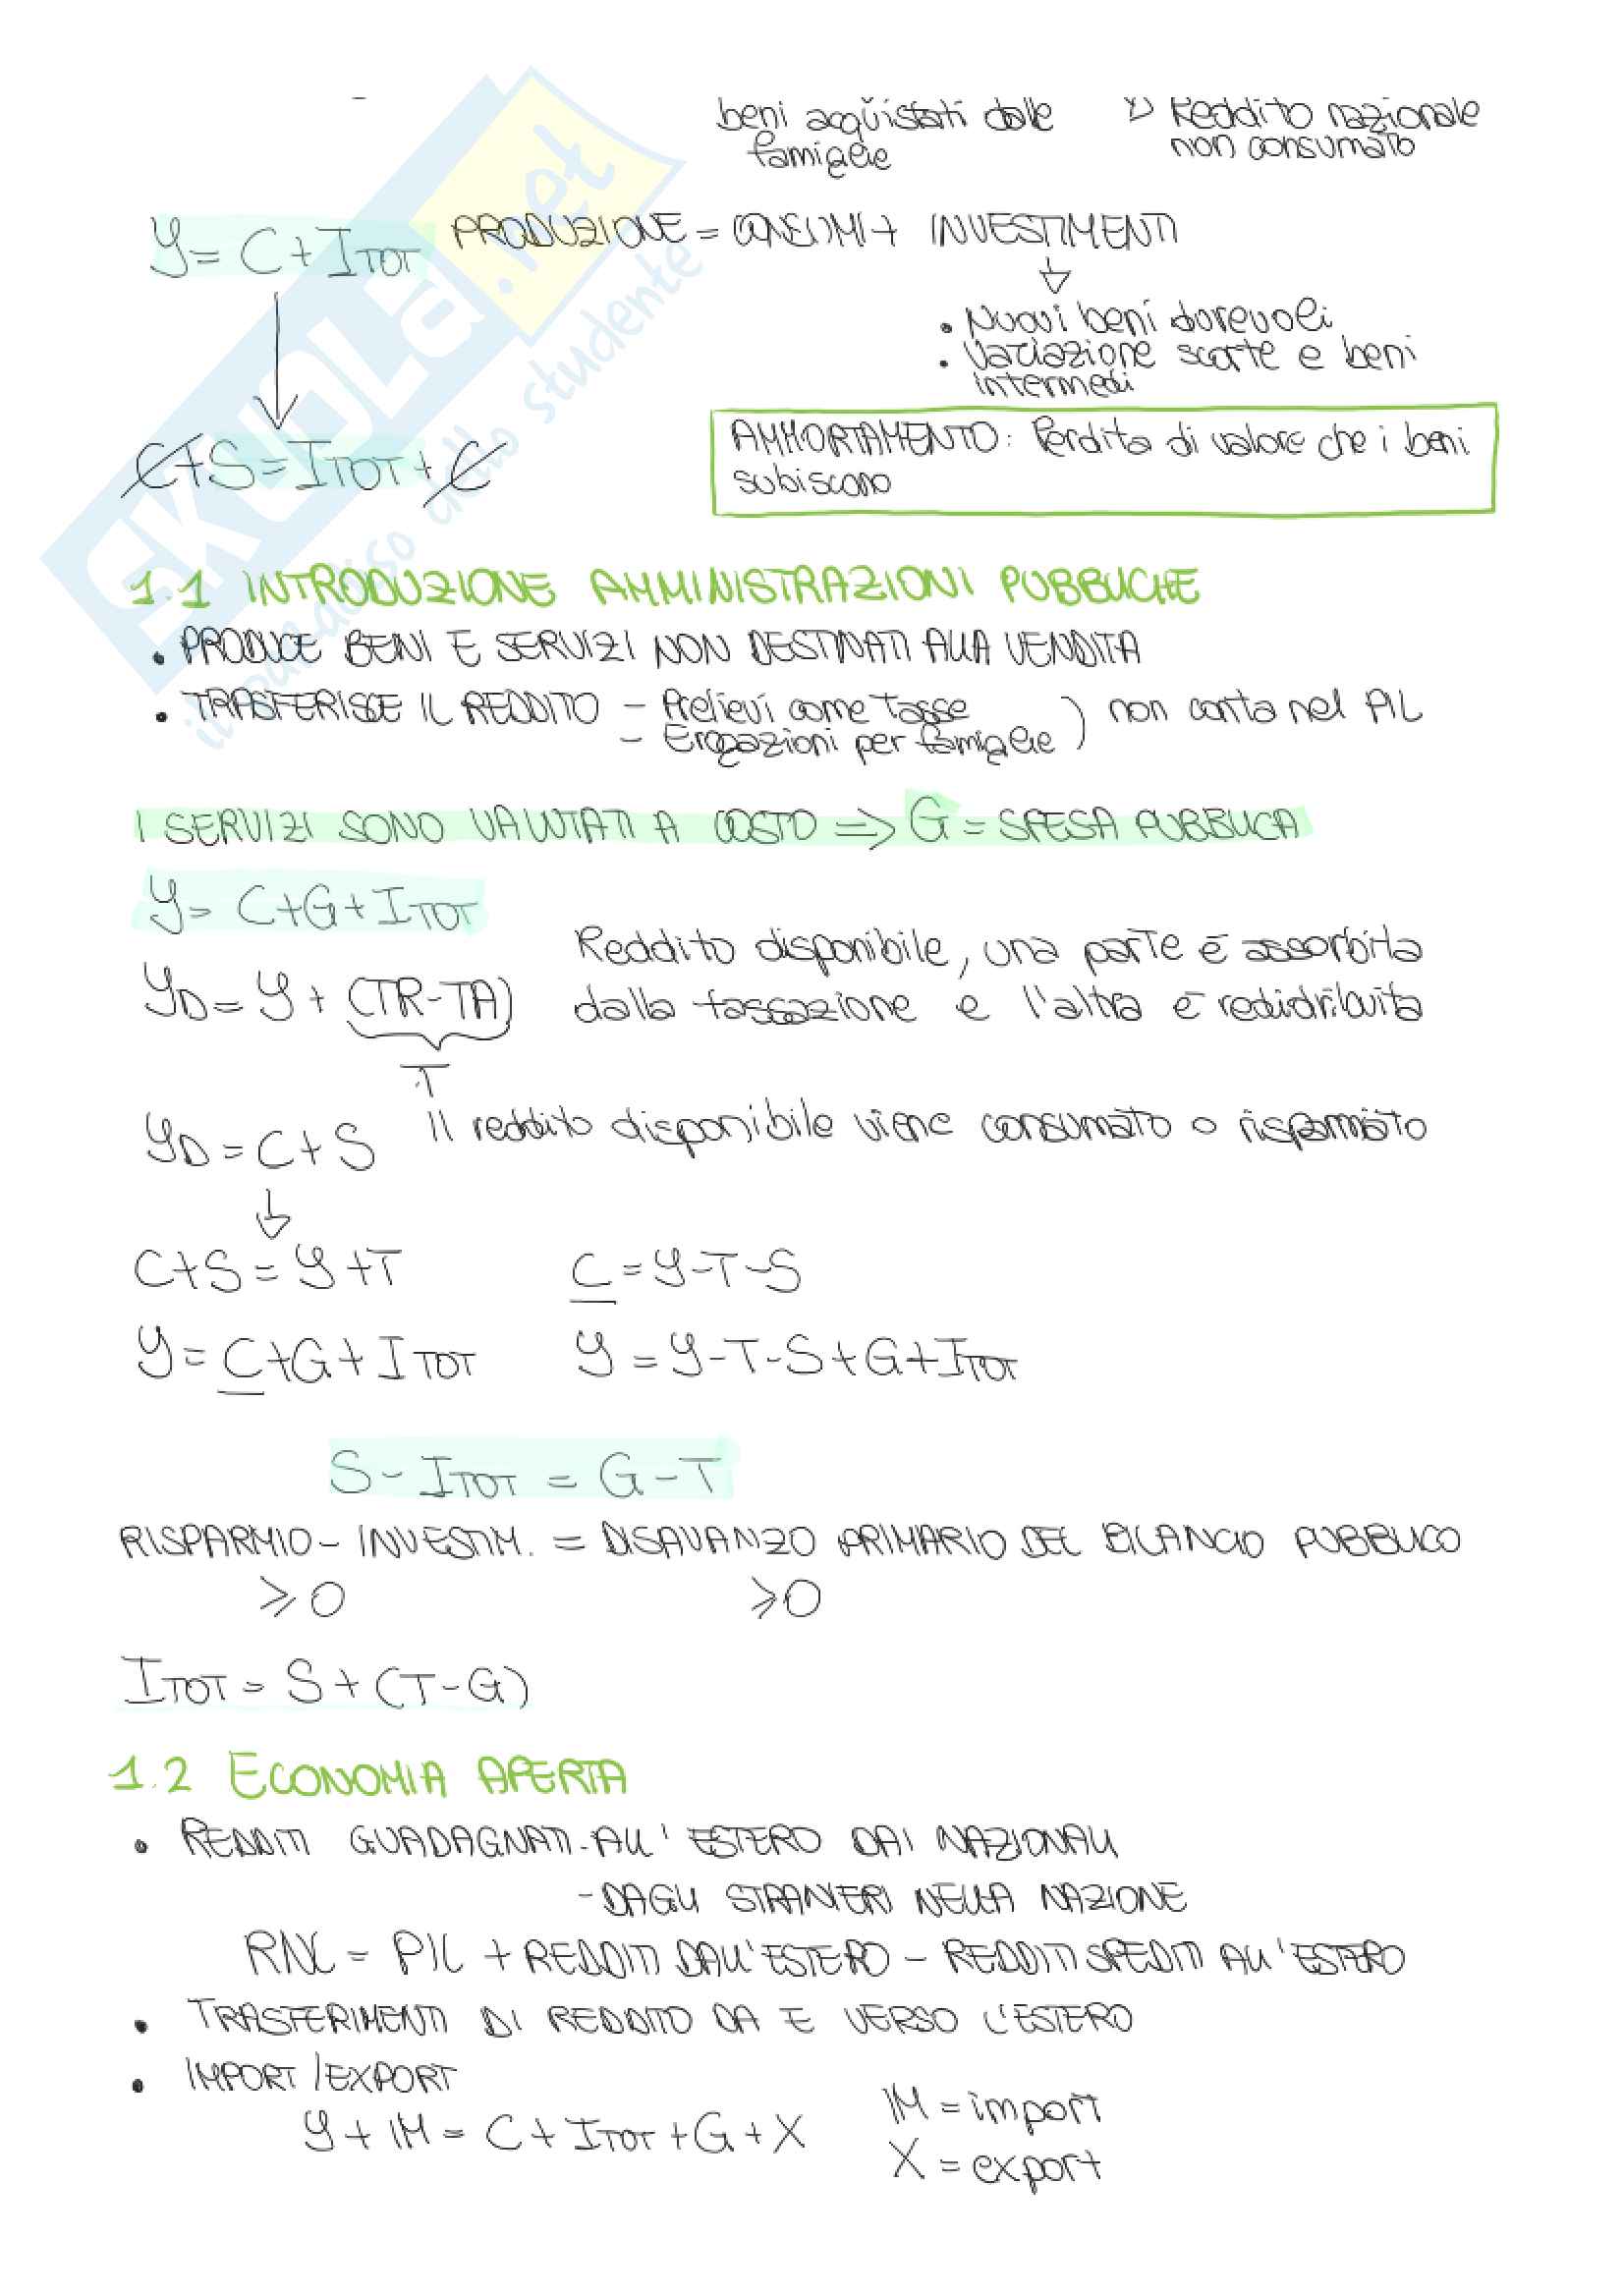 beni acquistati dalle
famiglie
Reddito nazionale
non consumato
Y = C + ITOT PRODUZIONE = CONSUMI + INVESTIMENTI
• Nuovi beni durevoli
• Variazione scorte e beni
intermedi
C+S = ITOT + C
AMMORTAMENTO: Perdita di valore che i beni
subiscono
SKUOLA.net
il paradiso dello studente
1.1 INTRODUZIONE AMMINISTRAZIONI PUBBLICHE
• PRODUCE BENI E SERVIZI NON DESTINATI ALLA VENDITA
• TRASFERISCE IL REDDITO - Prelievi come tasse
- Erogazioni per famiglie ) non conta nel PIL
I SERVIZI SONO VALUTATI A COSTO => G = SPESA PUBBLICA
Y = C+G+ITOT
YD = Y + (TR-TA)
T
Reddito disponibile, una parte è assorbita
dalla tassazione e l'altra è redidribuita
YD = C + S Il reddito disponibile viene consumato o risparmiato
C+S = Y+T C = Y-T-S
Y = C+G+ITOT Y = Y-T-S+G+ITOT
S - ITOT = G-T
RISPARMIO - INVESTIM. = DISAVANZO PRIMARIO DEL BILANCIO PUBBLICO
⩾ 0 ⩾ 0
ITOT = S + (T-G)
1.2 ECONOMIA APERTA
• REDDITI GUADAGNATI - ALL'ESTERO DAI NAZIONALI
- DAGLI STRANIERI NELLA NAZIONE
RNL = PIL + REDDITI DALL'ESTERO - REDDITI SPEDITI ALL'ESTERO
• TRASFERIMENTI DI REDDITO DA E VERSO L'ESTERO
• IMPORT/EXPORT
Y + IM = C + ITOT + G + X
IM = import
X = export